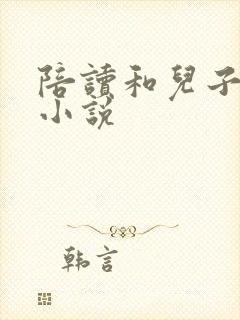 陪讀和兒子
小說
韩言